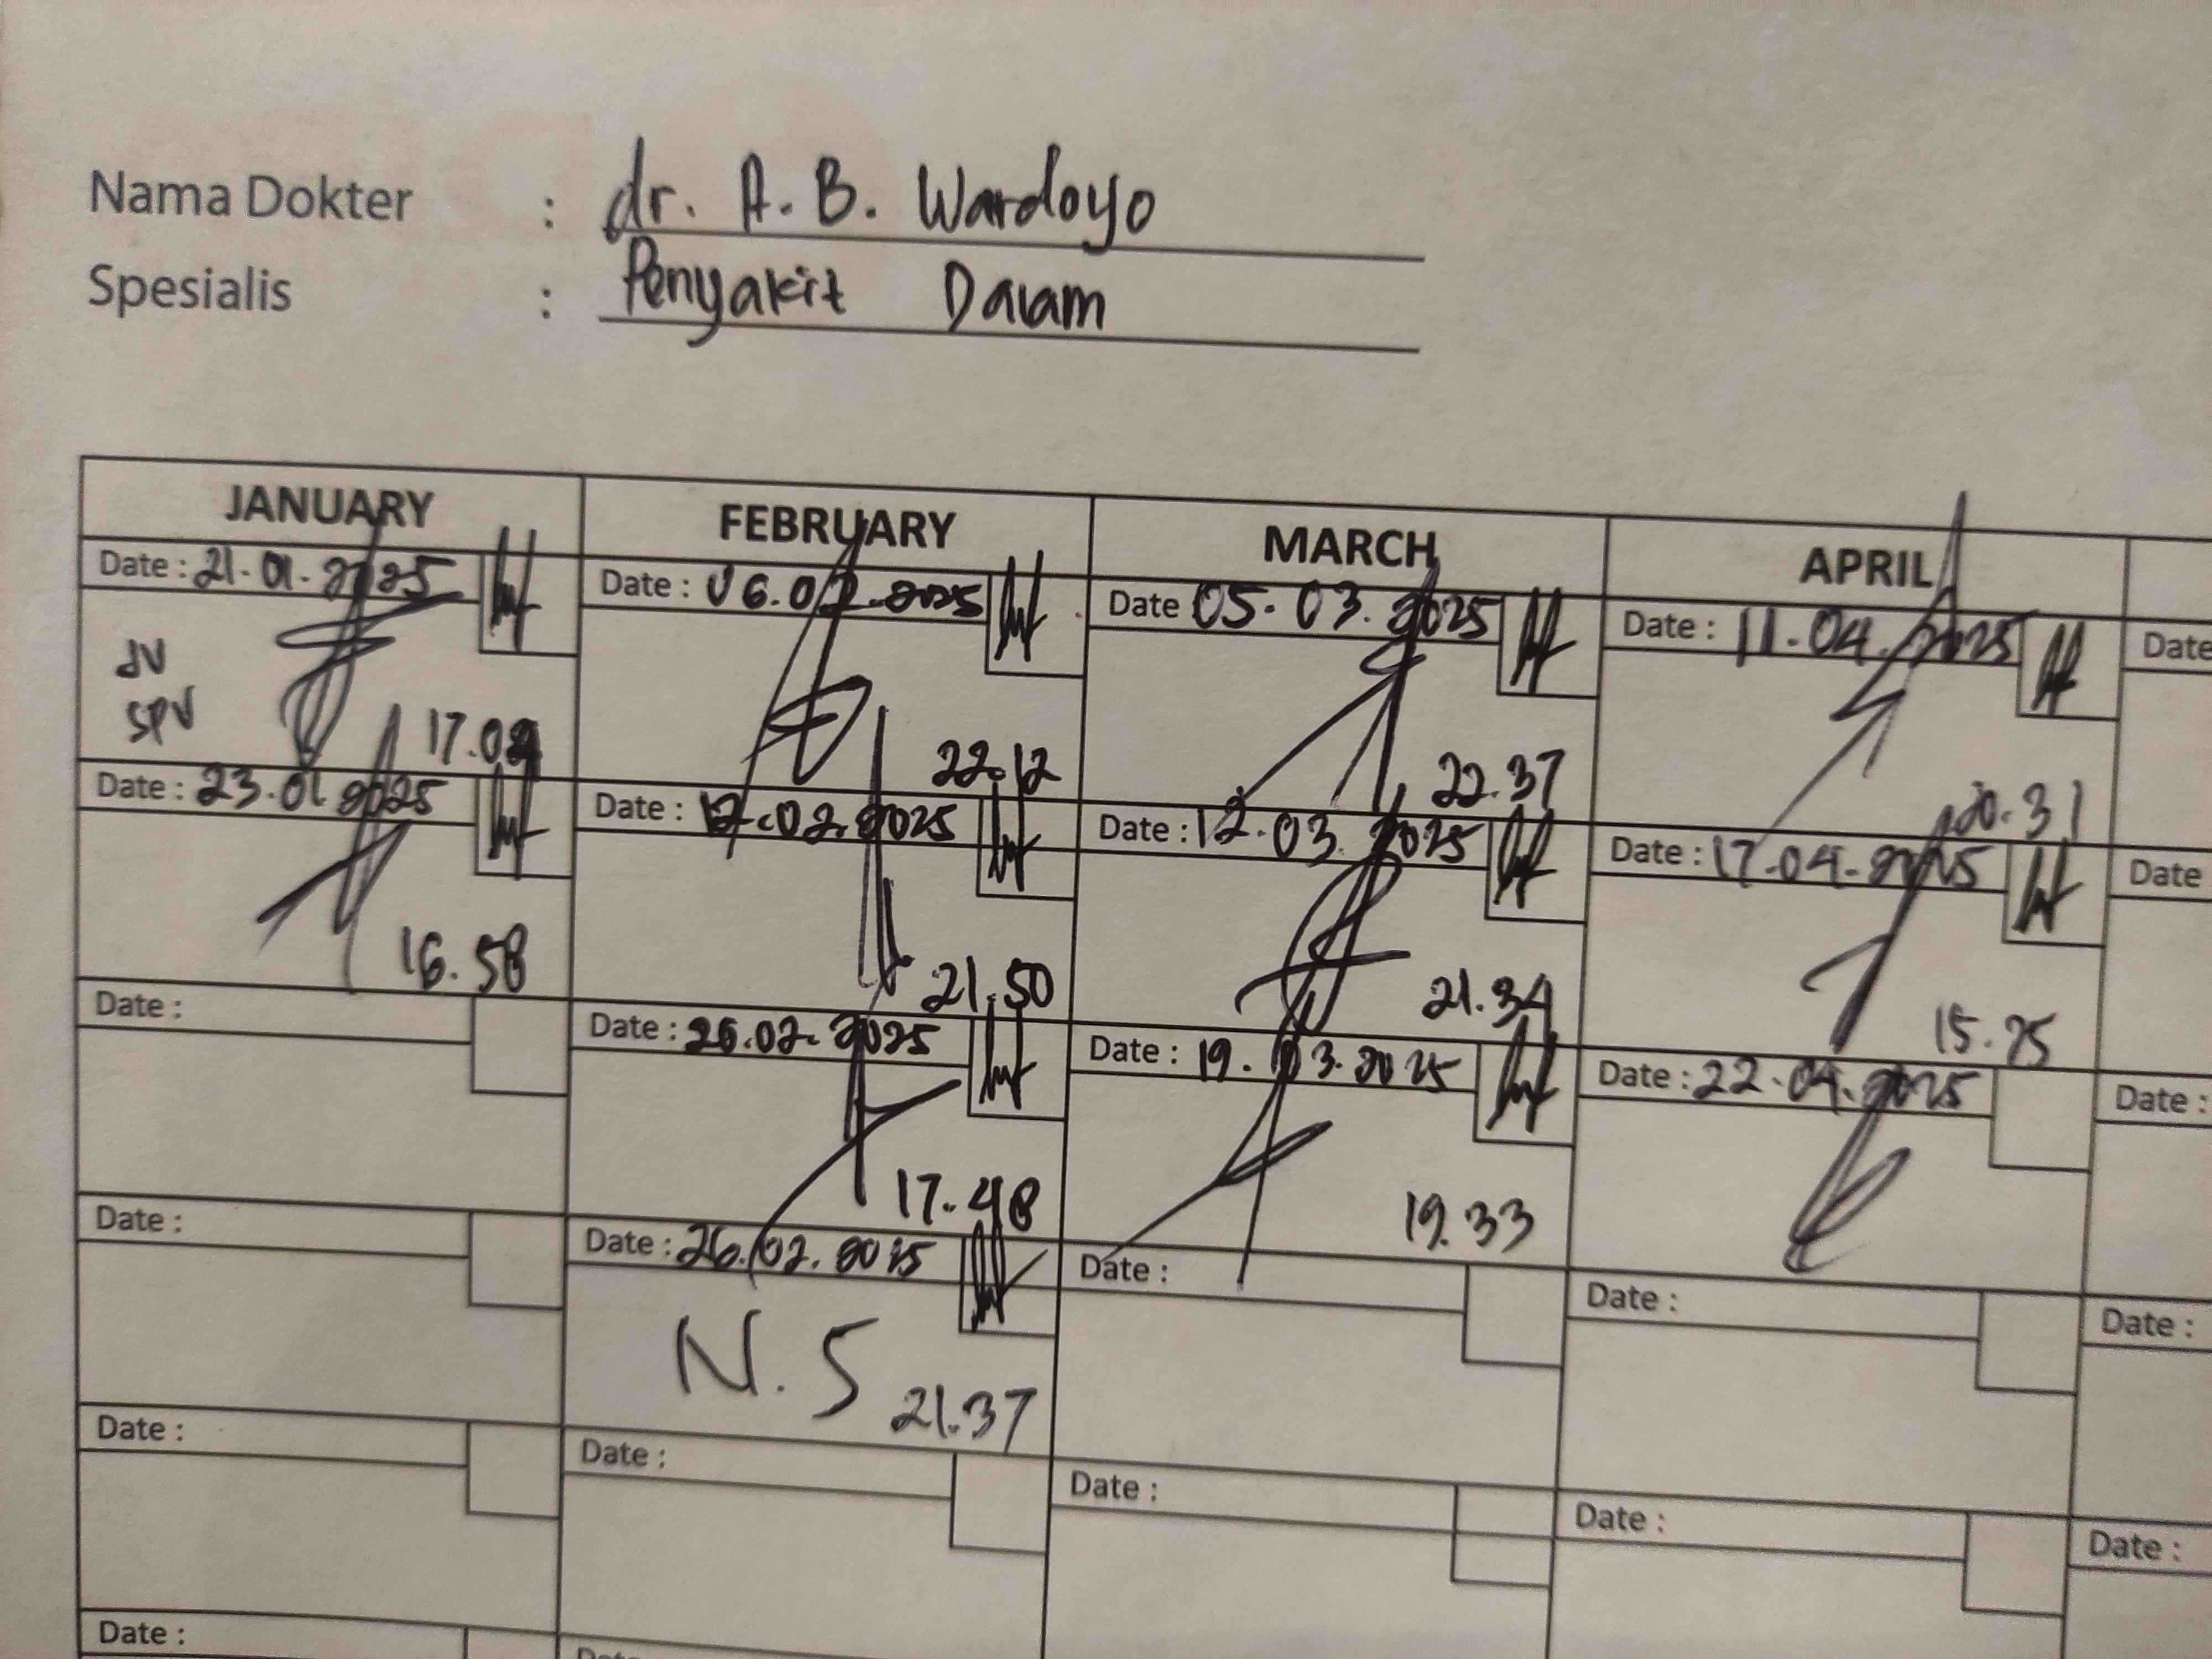 Nama Dokter : dr. A. B. Wardoyo
Spesialis : Penyakit Dalam
JANUARY FEBRUARY MARCH APRIL
Date : 21.01.2025 Date : 06.02.2025 Date 05.03.2025 Date : 11.04.2025 Date
JV
SPV
17.02 22.12 22.37 20.31
Date : 23.01.2025 Date : 12.02.2025 Date : 12.03.2025 Date : 17.04.2025 Date
16.58 21.50 21.34 15.25
Date : Date : 26.02.2025 Date : 19.03.2025 Date : 22.04.2025 Date :
17.48 19.33
Date : Date : 26.02.2025 Date : Date : Date :
N.S 21.37
Date : Date : Date : Date : Date :
Date :